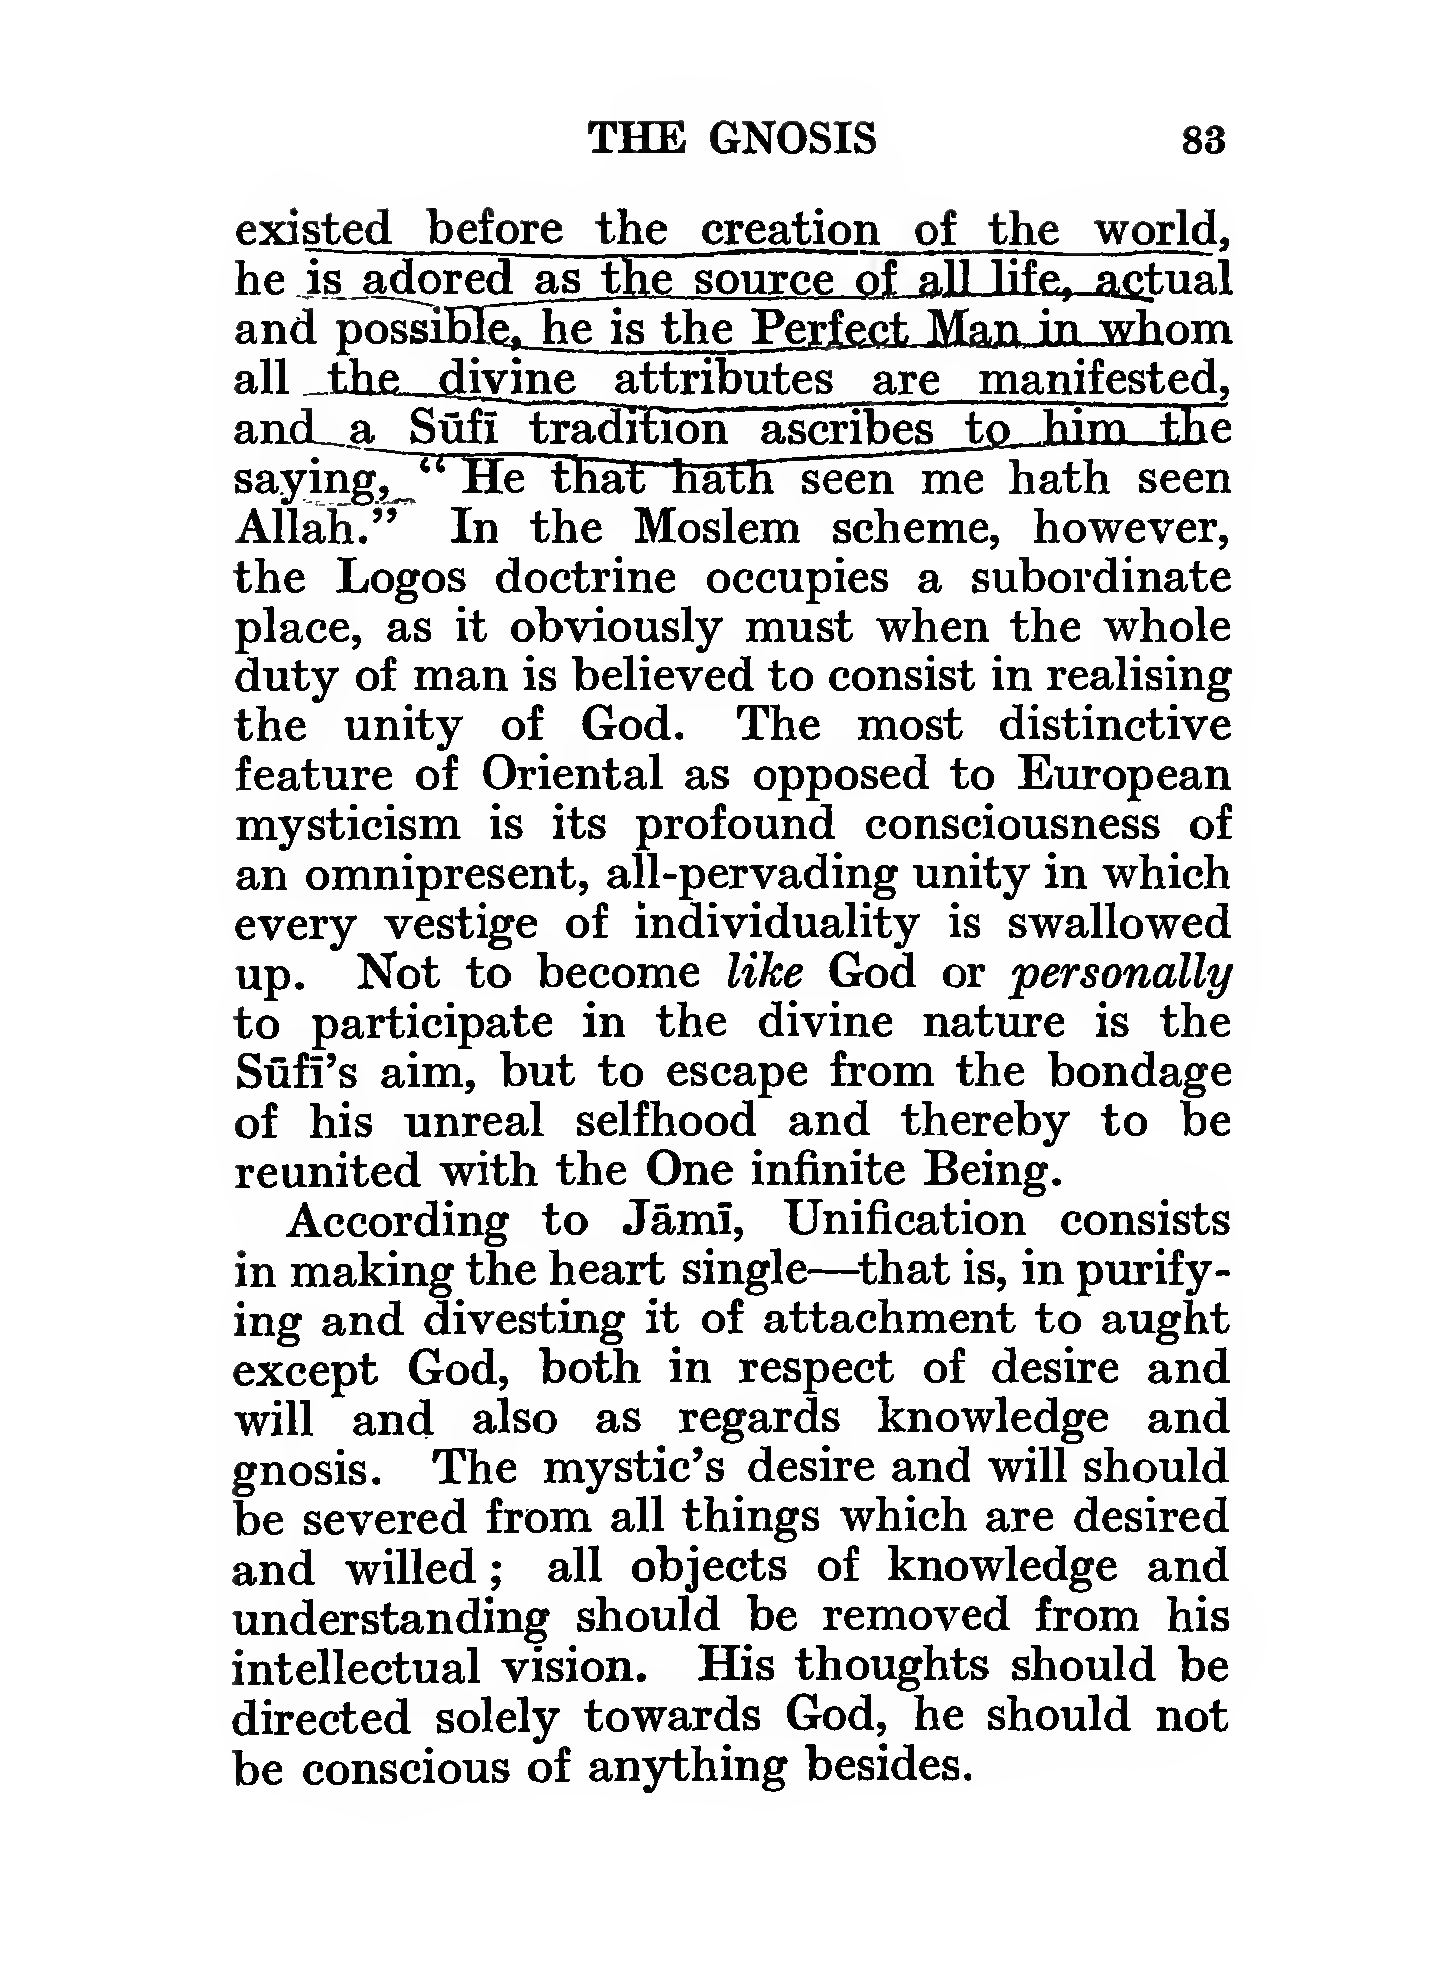 THE GNOSIS 83
existed before the creation of the world,
he is adored as the source of all life, actual
and possible, he is the Perfect Man in whom
all the divine attributes are manifested,
and a Sūfī tradition ascribes to him the
saying, “ He that hath seen me hath seen
Allah.” In the Moslem scheme, however,
the Logos doctrine occupies a subordinate
place, as it obviously must when the whole
duty of man is believed to consist in realising
the unity of God. The most distinctive
feature of Oriental as opposed to European
mysticism is its profound consciousness of
an omnipresent, all-pervading unity in which
every vestige of individuality is swallowed
up. Not to become like God or personally
to participate in the divine nature is the
Sūfī’s aim, but to escape from the bondage
of his unreal selfhood and thereby to be
reunited with the One infinite Being.
According to Jāmī, Unification consists
in making the heart single—that is, in purify-
ing and divesting it of attachment to aught
except God, both in respect of desire and
will and also as regards knowledge and
gnosis. The mystic’s desire and will should
be severed from all things which are desired
and willed ; all objects of knowledge and
understanding should be removed from his
intellectual vision. His thoughts should be
directed solely towards God, he should not
be conscious of anything besides.